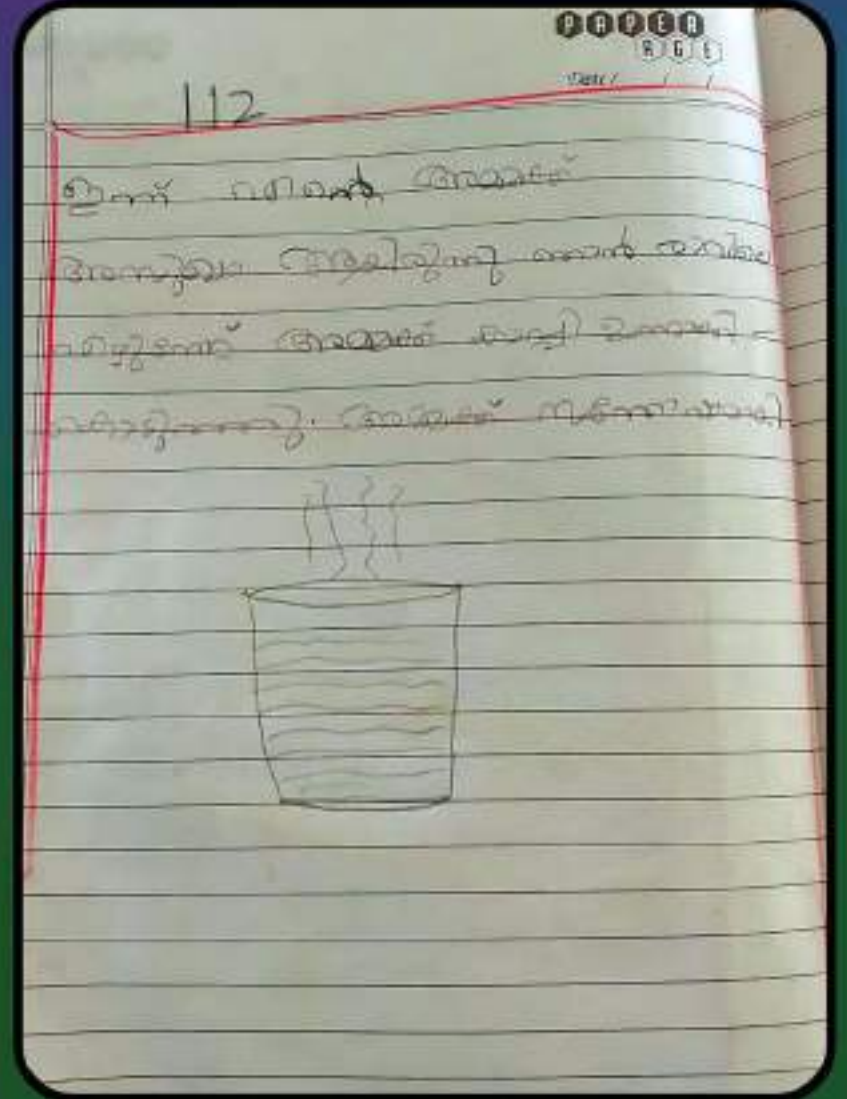 PAPER
AGE
Date / /
112
ഇന്ന് എന്റെ അമ്മക്ക്
അസുഖം ആയിരുന്നു ഞാൻ രാവിലെ
എഴുന്നേറ്റ് അമ്മക്ക് കാപ്പി ഉണ്ടാക്കി
കൊടുത്തു. അമ്മക്ക് സന്തോഷമായി